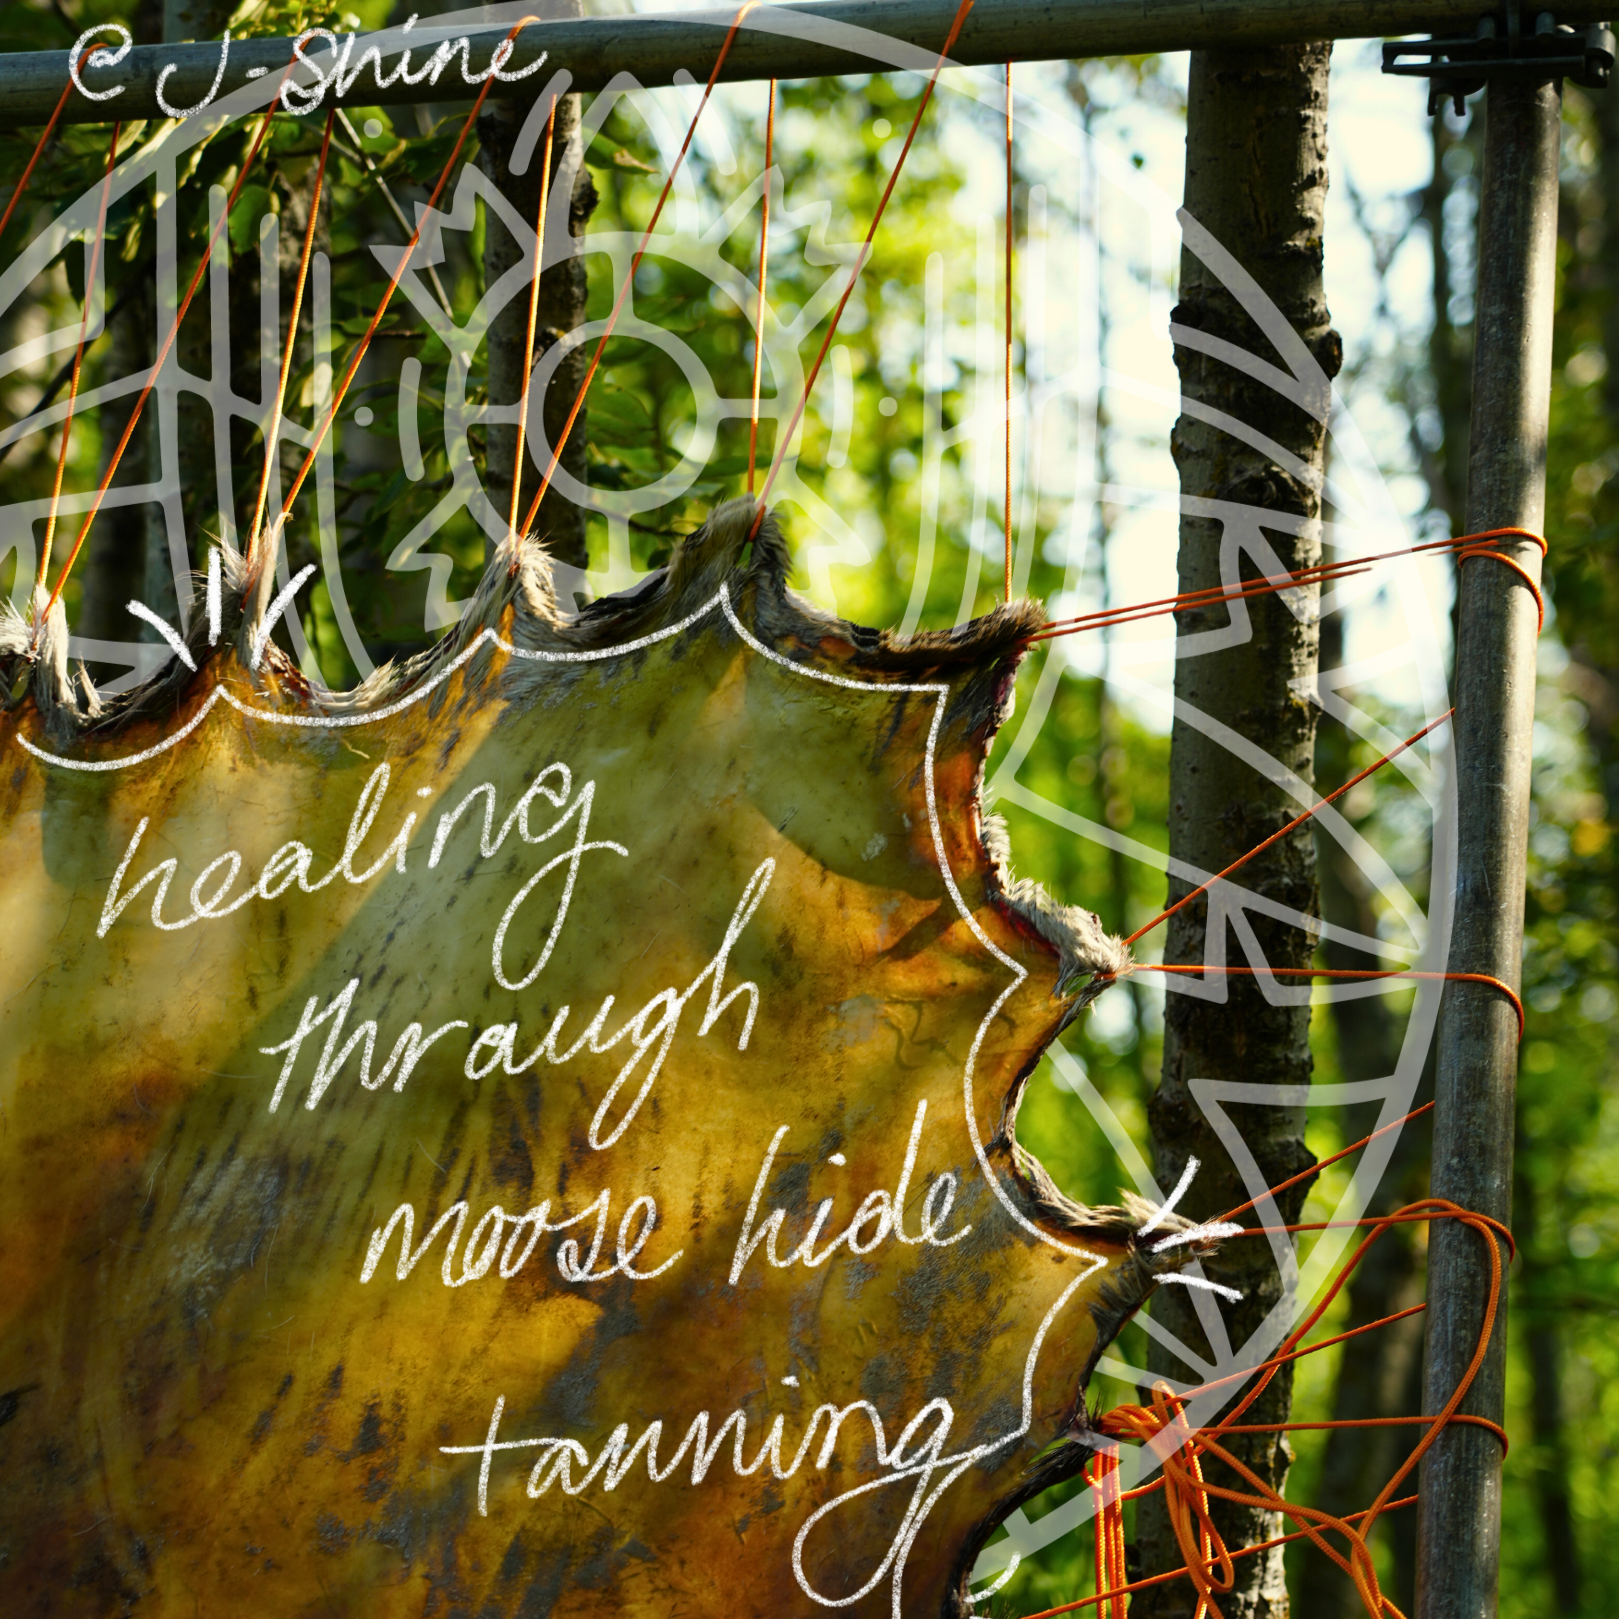 @ J-Shine
healing
through
moose hide
tanning